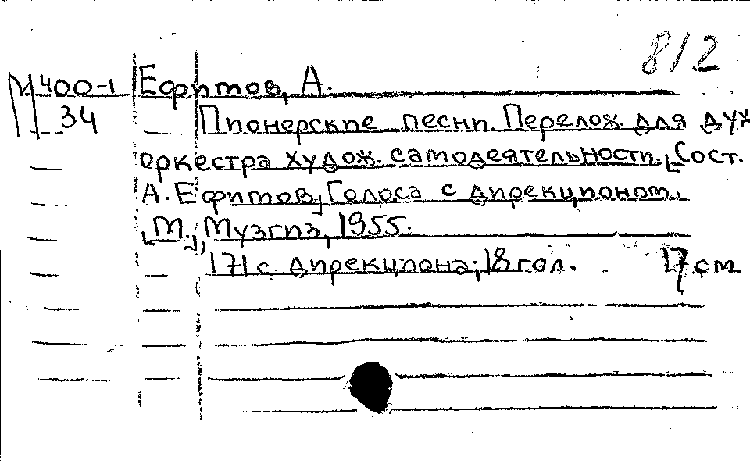 812
М400-1 Ефитов, А.
34 Пионерские песни. Перелож. для дух.
оркестра худож. самодеятельности. [Сост.
А. Ефитов] Голоса с дирекционом.
[М.], Музгиз, 1955.
171 с. дирекциона; 18 гол. 17 см